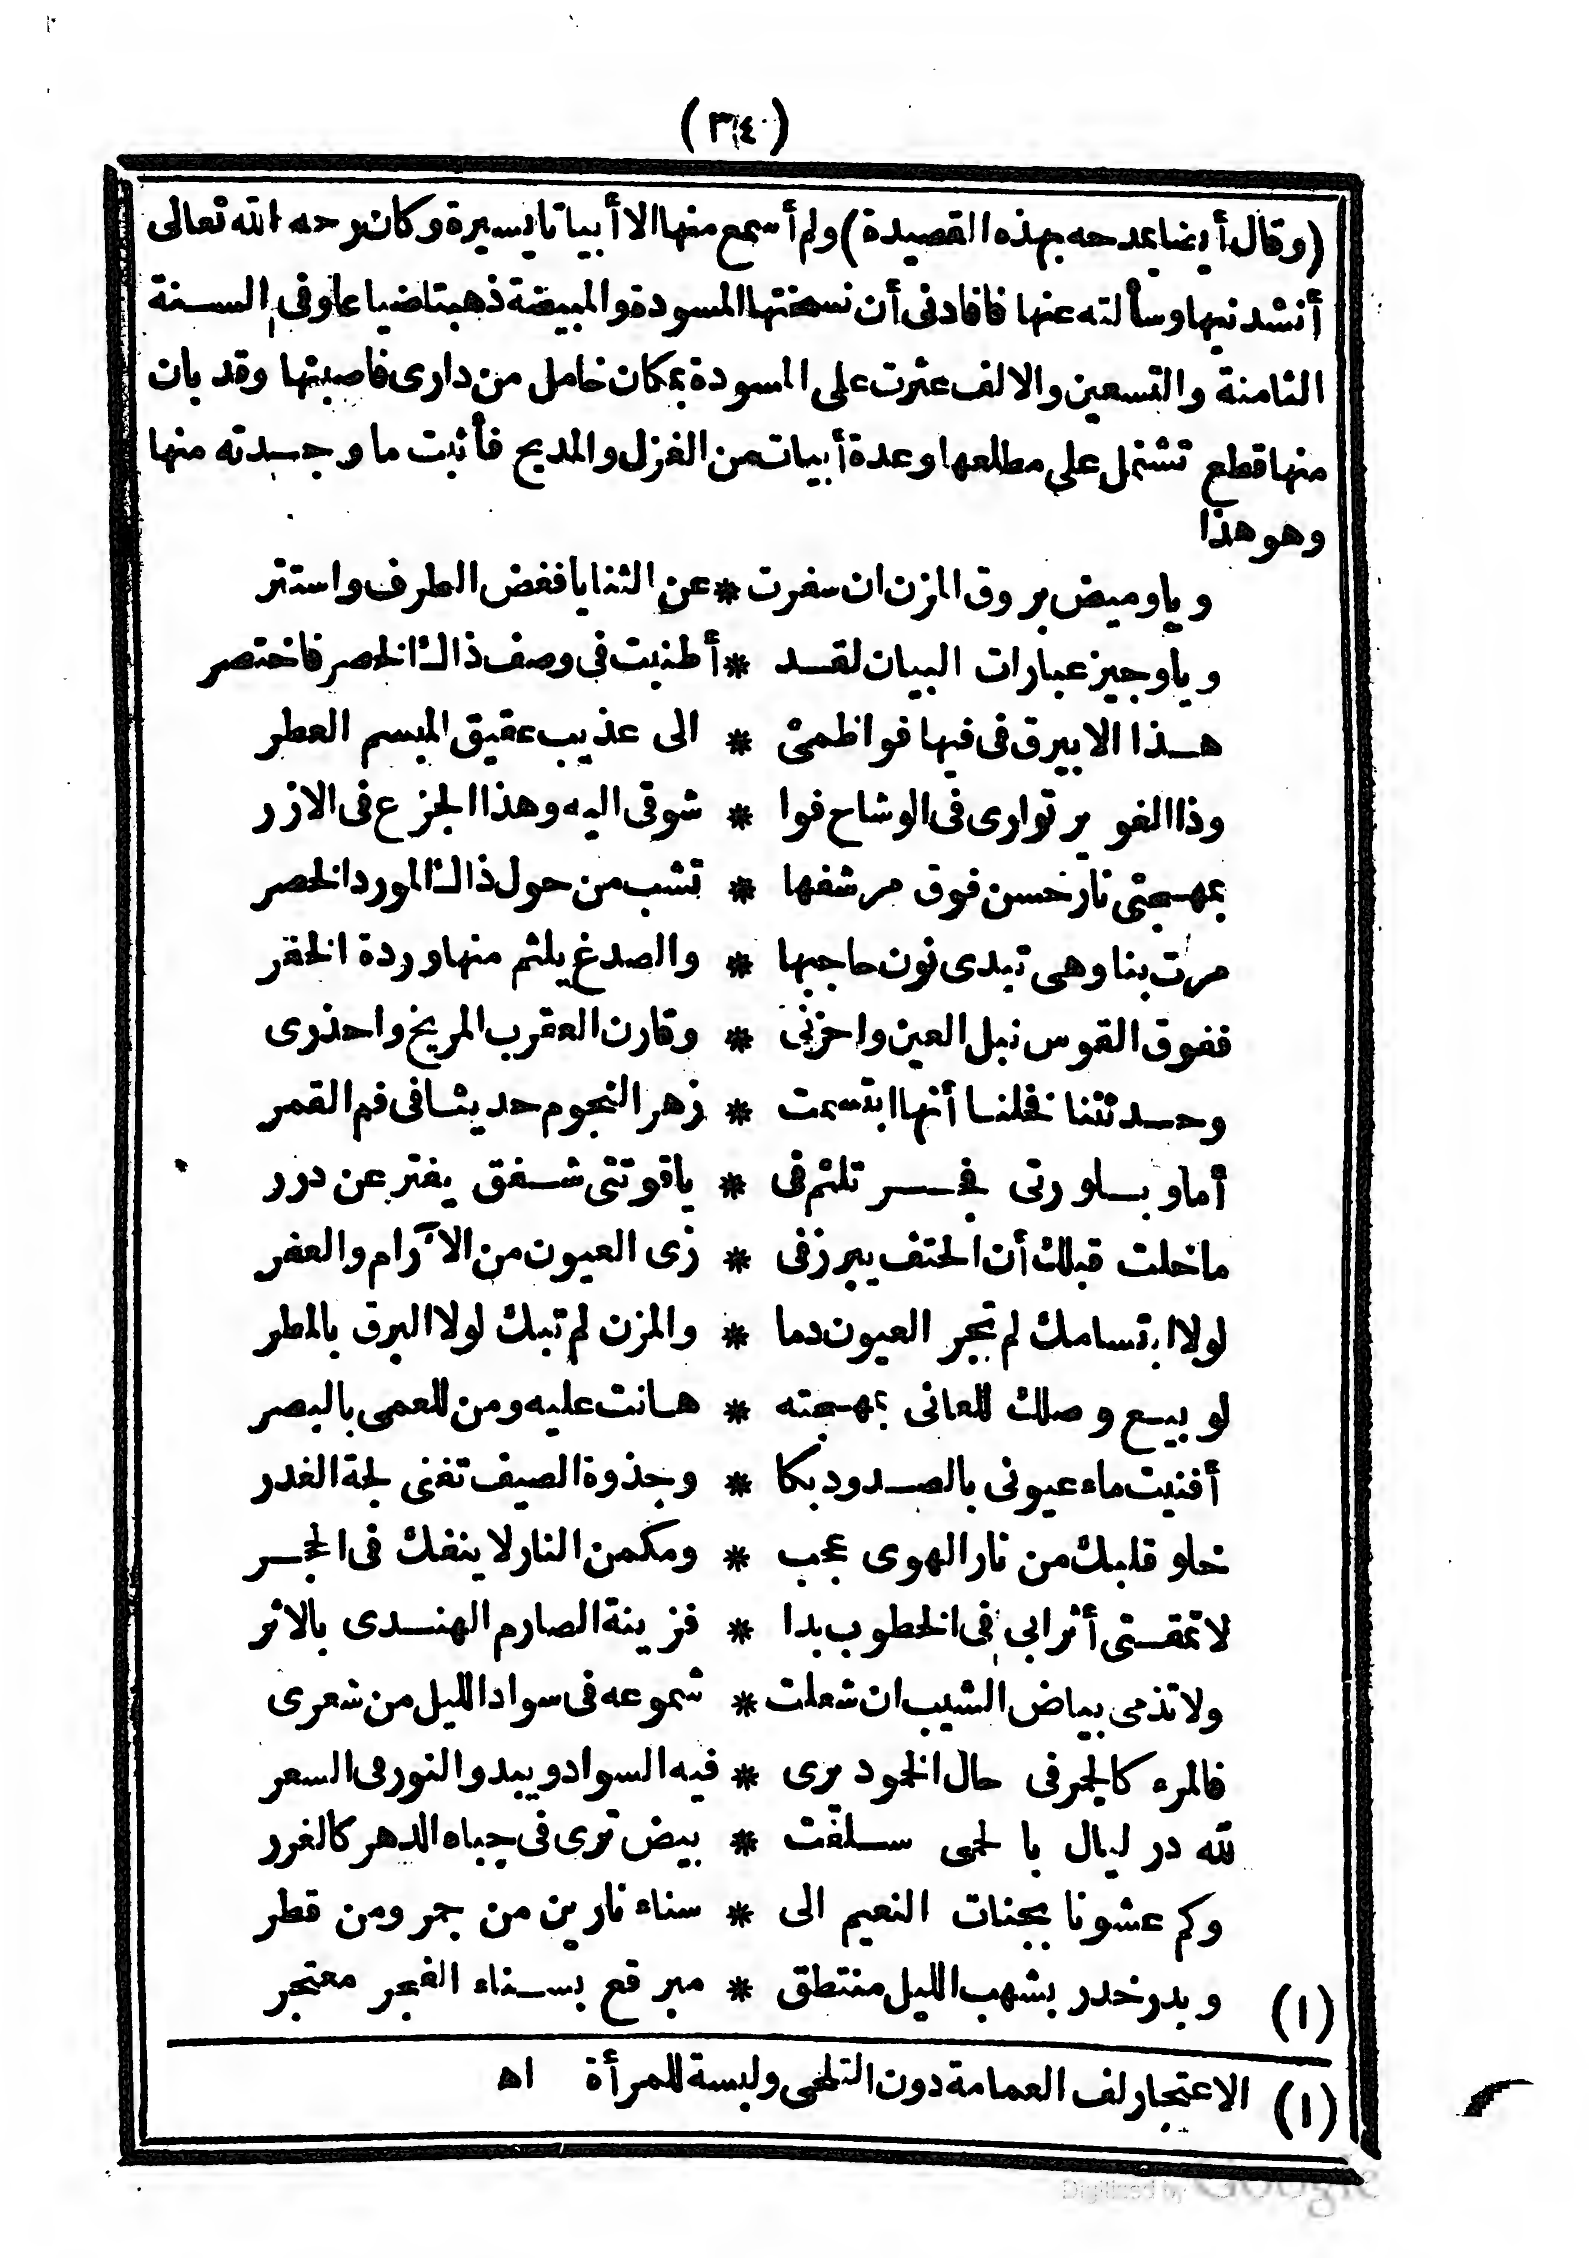 (٣٤)
(وقال أيضا يمدحه بهذه القصيدة) ولم أسمع منها الا أبياتا يسيرة وكان رحمه الله تعالى
أنشدنيها وسألته عنها فافادنى أن نسختها المسودة والمبيضة ذهبتا ضياعا وفى السنة
الثامنة والتسعين والالف عثرت على المسودة بمكان خامل من دارى فاصبتها وقد بان
منها قطع تشتمل على مطلعها وعدة أبيات من الغزل والمديح فأثبت ما وجدته منها
وهو هذا
ويا وميض بروق المزن ان سفرت * عن الثنايا فغض الطرف واستتر
ويا وجيز عبارات البيان لقد * أطنبت فى وصف ذاك الخصر فاختصر
هذا الابيرق فى فيها فوا ظمئ * الى عذيب عقيق المبسم العطر
وذا الغوير توارى فى الوشاح فوا * شوقى اليه وهذا الجزع فى الازر
بمهجتى نار خسن فوق مرشفها * تشب من حول ذاك المورد الخصر
مرت بنا وهى تبدى نون حاجبها * والصدغ يلثم منها وردة الخفر
ففوق القوس نبل العين واحزنى * وقارن العقرب المريخ واحذرى
وحدثتنا فخلنا أنها ابتسمت * زهر النجوم حديثا فى فم القمر
أما وبلورتى فجر تلثم فى * ياقوتتى شفق يفتر عن درر
ما خلت قبلك أن الحتف يبرز فى * زى العيون من الآرام والعفر
لولا ابتسامك لم تجر العيون دما * والمزن لم تبك لولا البرق بالمطر
لو بيع وصلك للعانى بمهجته * هانت عليه ومن للعمى بالبصر
أفنيت ماء عيونى بالصدود بكا * وجذوة الصيف تفنى لجة الغدر
خلو قلبك من نار الهوى عجب * ومكمن النار لا ينفك فى الحجر
لا تمقتى أثرا بى فى الخطوب بدا * فزينة الصارم الهندى بالاثر
ولا تذمى بياض الشيب ان شعلت * شموعه فى سواد الليل من شعرى
فالمرء كالجمر فى حال الخمود يرى * فيه السواد ويبدو النور فى السعر
لله در ليال بالحمى سلفت * بيض ترى فى جباه الدهر كالغرر
وكم عشونا بجنات النعيم الى * سناء نارين من جمر ومن قطر
(١) وبدر خدر بشهب الليل منتطق * مبرقع بسناء الفجر معتجر
(١) الاعتجار لف العمامة دون التلحى ولبسة للمرأة اه
Digitized by Google